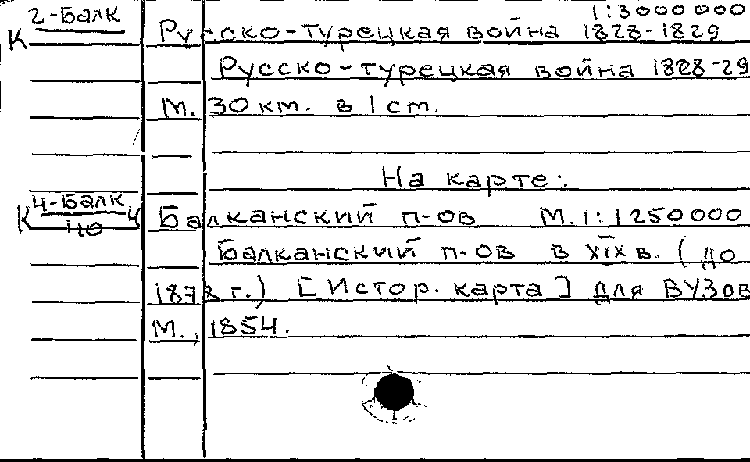 1:3000000
2-Балк
К
Русско-турецкая война 1828-1829
Русско-турецкая война 1828-29
М. 30 км. в 1 cm.
На карте:
К 4-Балк
40 4
Балканский п-ов М. 1:1250000
Балканский п-ов в XIX в. (до
1878 г.) [Истор. карта] для ВУЗов
М., 1854.